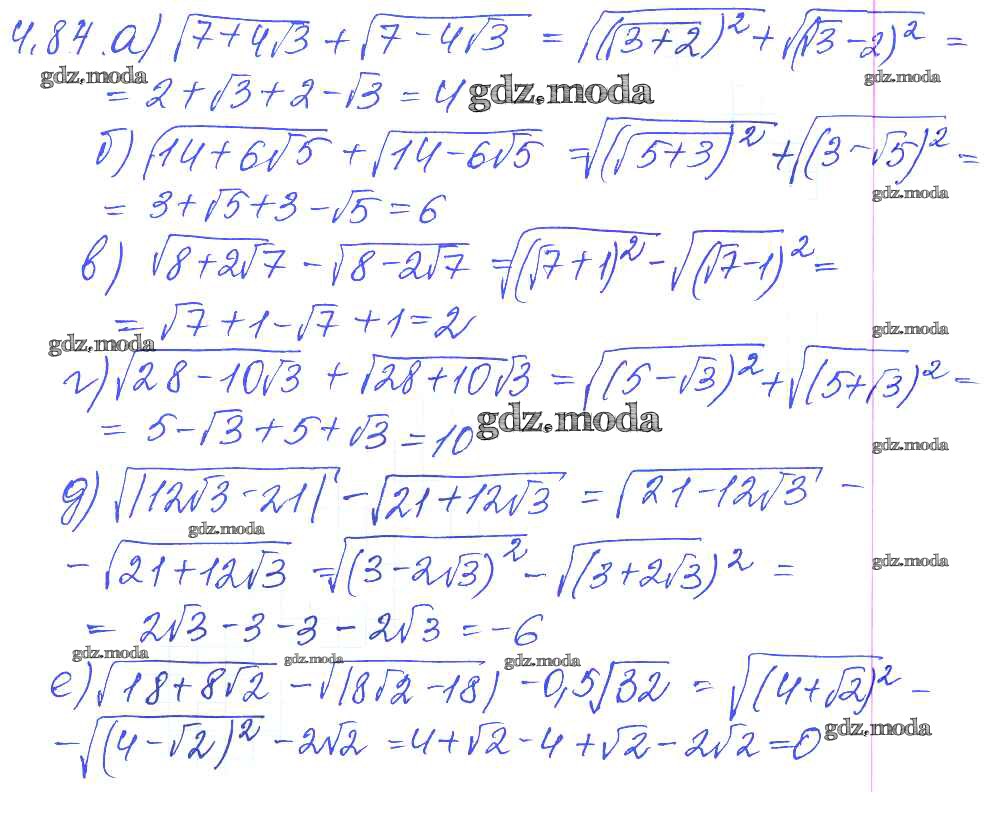 4.84. а) √(7+4√3) + √(7-4√3) = √((√3+2)²) + √((√3-2)²) =
gdz.moda gdz.moda
= 2+√3+2-√3 = 4 gdz.moda
б) √(14+6√5) + √(14-6√5) = √((√5+3)²) + √((3-√5)²) =
gdz.moda
= 3+√5+3-√5 = 6
в) √(8+2√7) - √(8-2√7) = √((√7+1)²) - √((√7-1)²) =
= √7+1-√7+1=2 gdz.moda
gdz.moda
г) √(28-10√3) + √(28+10√3) = √((5-√3)²) + √((5+√3)²) =
= 5-√3+5+√3 = 10 gdz.moda
gdz.moda
д) √|12√3-21| - √(21+12√3) = √(21-12√3) -
gdz.moda
- √(21+12√3) = √((3-2√3)²) - √((3+2√3)²) =
gdz.moda
= 2√3-3-3-2√3 = -6
gdz.moda gdz.moda gdz.moda
е) √(18+8√2) - √|8√2-18| - 0,5√32 = √((4+√2)²) -
gdz.moda
- √((4-√2)²) - 2√2 = 4+√2-4+√2-2√2=0